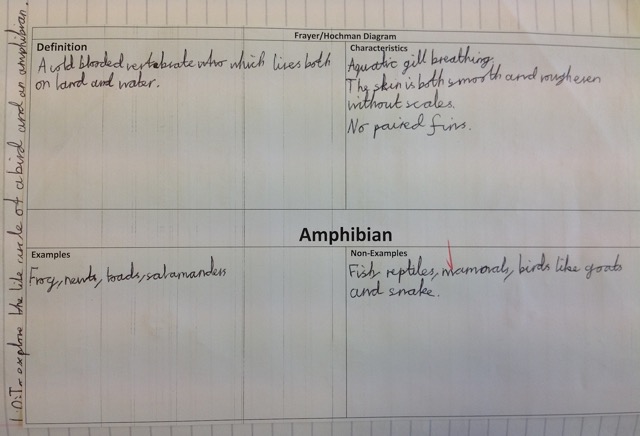 Frayer/Hochman Diagram
Definition
A cold blooded vertebrate who which lives both
on land and water.
Characteristics
Aquatic gill breathing.
The skin is both smooth and rough even
without scales.
No paired fins.
Amphibian
Examples
Frog, newts, toads, salamanders
Non-Examples
Fish, reptiles, mammals, birds like goats
and snake.
explore the life circle of a bird and an amphibian.